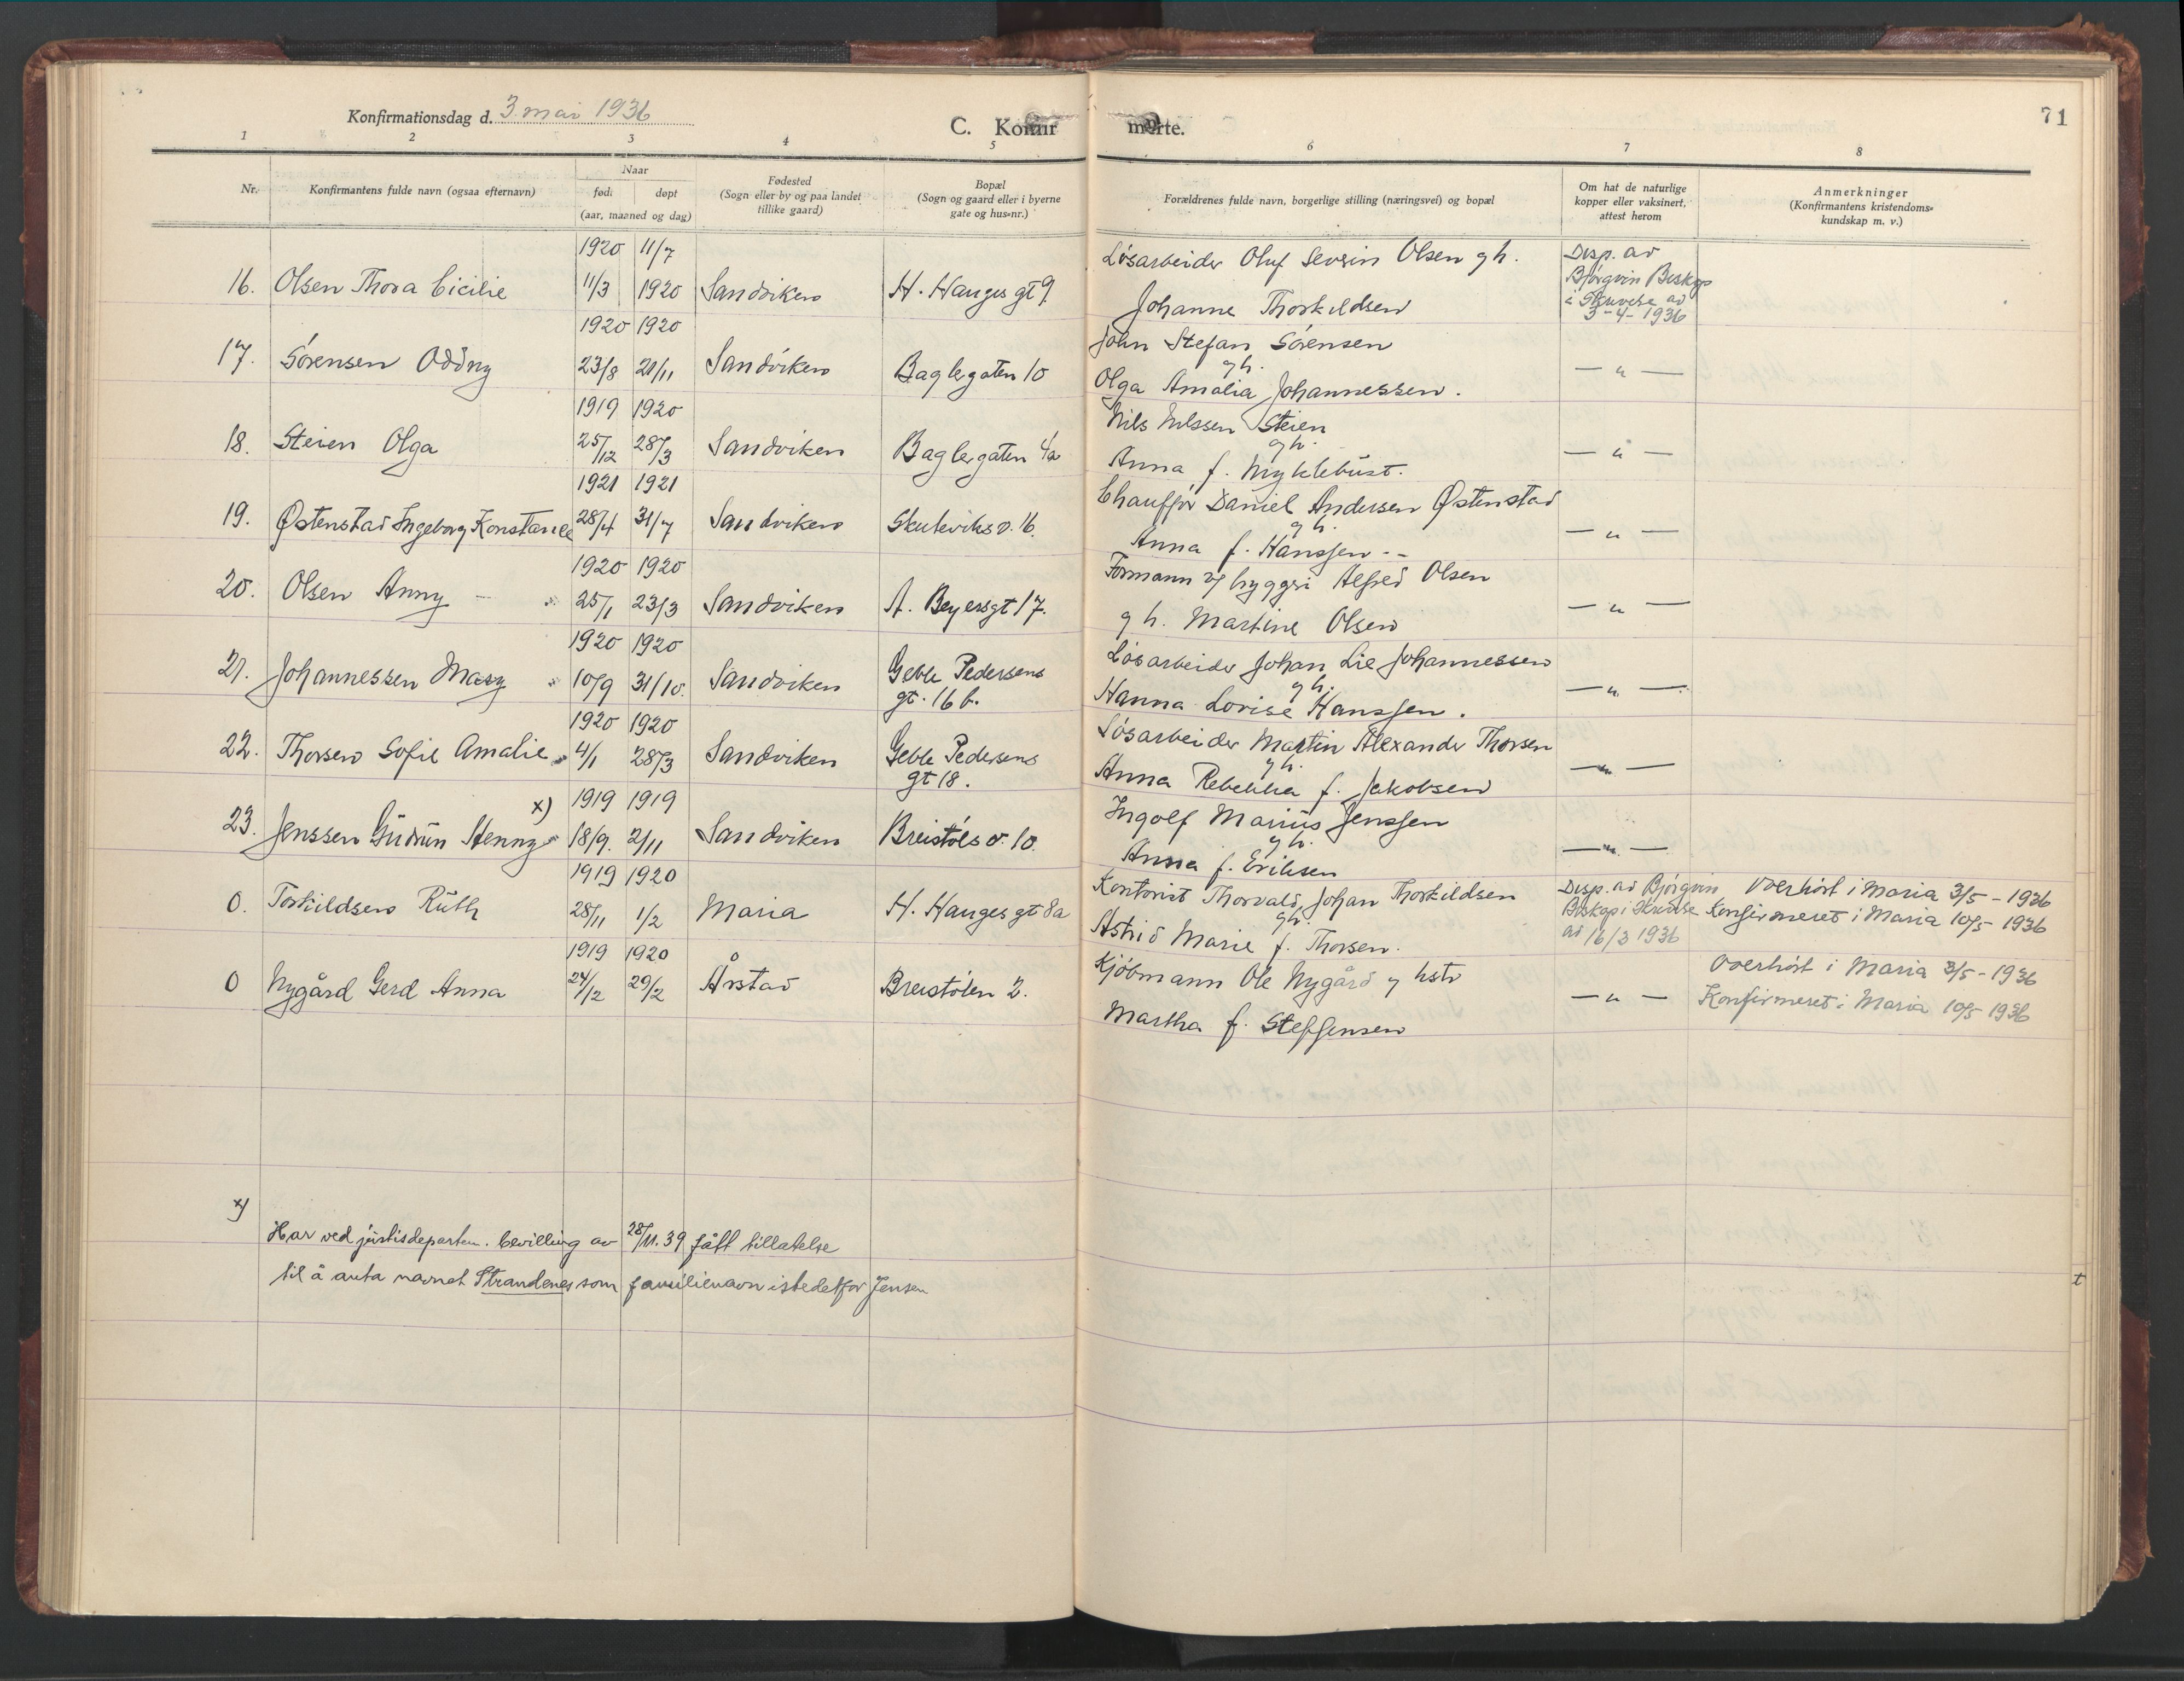 Konfirmationsdag d. 3 mai 1936
C. Konfir merte.
71
1 2 3 4 5 6 7 8
Nr.
Konfirmantens fulde navn (ogsaa efternavn)
Naar
født døpt
(aar, maaned og dag)
Fødested
(Sogn eller by og paa landet
tillike gaard)
Bopæl
(Sogn og gaard eller i byerne
gate og hus-nr.)
Forældrenes fulde navn, borgerlige stilling (næringsvei) og bopæl
Om hat de naturlige
kopper eller vaksinert,
attest herom
Anmerkninger
(Konfirmantens kristendoms-
kundskap m. v.)
1920 11/7
16. Olsen Thora Cicilie 11/3 1920 Sandviken H. Hauges gt 9.
Løsarbeider Oluf Severin Olsen g h.
Johanne Thorkildsen
Disp. av
Bjørgvin Biskop
i Skrivelse av
3-4-1936
1920 1920
17. Sørensen Oddny 23/8 21/11 Sandviken Baglergaten 10
John Stefan Sørensen
g h.
Olga Amalia Johannessen.
— " —
1919 1920
18. Steien Olga 25/12 28/3 Sandviken Baglergaten 4a
Nils Nilssen Steien
g h.
Anna f. Myklebust.
— " —
1921 1921
19. Østenstad Ingeborg Konstance 28/4 31/7 Sandviken Skuteviksv. 16.
Chauffør Daniel Andersen Østenstad
g h.
Anna f. Hanssen --
— " —
1920 1920
20. Olsen Anny 25/1 23/3 Sandviken A. Beyersgt 17.
Formann v/ bryggri Alfred Olsen
g h. Martine Olsen
— " —
1920 1920
21. Johannessen Mary 10/9 31/10. Sandviken Geble Pedersens
gt. 16 b.
Løsarbeider Johan Lie Johannessen
g h.
Hanna Lovise Hanssen.
— " —
1920 1920
22. Thorsen Sofie Amalie 4/1 28/3 Sandviken Geble Pedersens
gt 18.
Løsarbeider Martin Alexander Thorsen
g h.
Anna Rebekka f. Jakobsen
— " —
x) 1919 1919
23. Jenssen Gudrun Henny 18/9. 2/11 Sandviken Breistøls v. 10.
Ingolf Marius Jenssen
g h.
Anna f. Eriksen
— " —
1919 1920
0. Torkildsen Ruth 28/11 1/2 Maria H. Hauges gt 8a
Kontorist Thorvald Johan Thorkildsen
g h.
Astrid Marie f. Thorsen.
Disp. av Bjørgvin
Biskop i Skrivelse
av 16/3 1936
Overhørt i Maria 3/5 - 1936
Konfirmeret i Maria 10/5 - 1936
1919 1920
0 Nygård Gerd Anna 24/12 29/2 Årstad Breistølen 2.
Kjøbmann Ole Nygård g hstr
Martha f. Steffensen
— " —
Overhørt i Maria 3/5 - 1936
Konfirmeret i Maria 10/5 1936
x)
Har ved justisdepartem. bevilling av 28/11. 39 fått tillatelse
til å anta navnet Strandenes som familienavn istedetfor Jensen
t